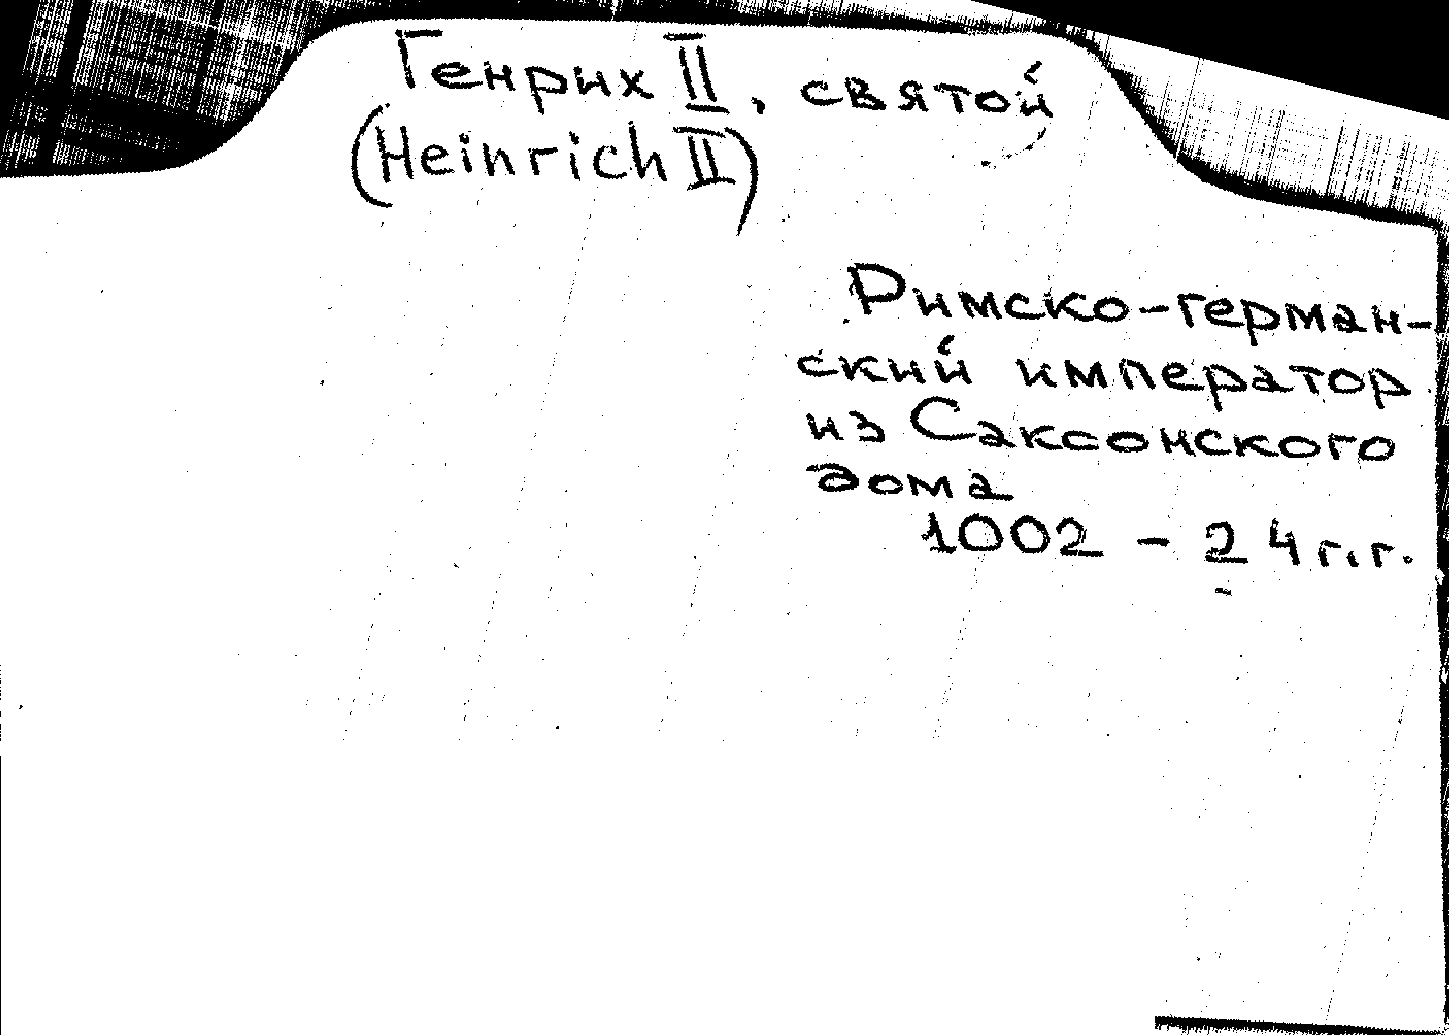 Генрих II, святой
(Heinrich II)
Римско-герман-
ский император
из Саксонского
дома
1002 - 24 г.г.